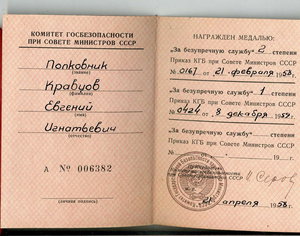 КОМИТЕТ ГОСБЕЗОПАСНОСТИ
ПРИ СОВЕТЕ МИНИСТРОВ СССР
Полковник
(звание)
Кравцов
(фамилия)
Евгений
(имя)
Игнатьевич
(отчество)
А № 006382
(личная подпись)
НАГРАЖДЕН МЕДАЛЬЮ:
„За безупречную службу“ 2 степени
Приказ КГБ при Совете Министров СССР
№ 0167 от 21 февраля 1958г.
„За безупречную службу“ 1 степени
Приказ КГБ при Совете Министров СССР
№ 0424 от 8 декабря 1958г.
„За безупречную службу“ степени
Приказ КГБ при Совете Министров СССР
№ от 19 г.
апреля 1958г.